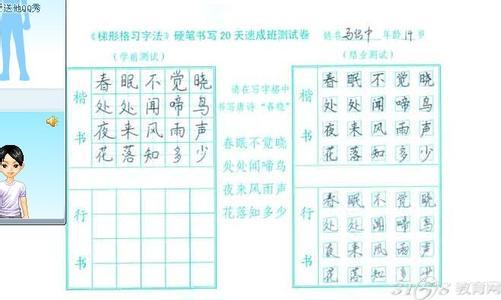 送他QQ秀
《梯形格习字法》硬笔书写20天速成班测试卷
姓名 年龄 19 岁
(学前测试)
楷书
春眠不觉晓
处处闻啼鸟
夜来风雨声
花落知多少
行书
请在写字格中
书写唐诗“春晓”
春眠不觉晓
处处闻啼鸟
夜来风雨声
花落知多少
(结业测试)
楷书
春眠不觉晓
处处闻啼鸟
夜来风雨声
花落知多少
行书
春眠不觉晓
处处闻啼鸟
夜来风雨声
花落知多少
教育网